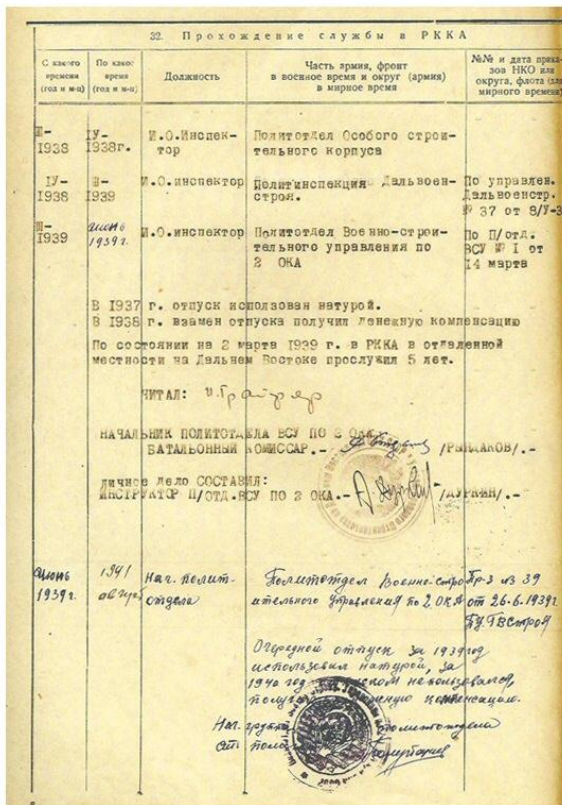 32. Прохождение службы в РККА
С какого времени (год и м-ц)
По какое время (год и м-ц)
Должность
Часть армия, фронт в военное время и округ (армия) в мирное время
№№ и дата приказов НКО или округа, флота (для мирного времени)
Ш-1938
IУ-1938г.
И.О.Инспектор
Политотдел Особого строительного корпуса
IУ-1938
Ш-1939
И.О.инспектор
Политинспекция Дальвоенстроя.
По управлен. Дальвоенстр. № 37 от 8/У-3
Ш-1939
июнь 1939г.
И.О.инспектор
Политотдел Военно-строительного управления по 2 ОКА
По П/отд. ВСУ № I от 14 марта
В 1937 г. отпуск использован натурой.
В 1938 г. взамен отпуска получил денежную компенсацию
По состоянии на 2 марта 1939 г. в РККА в отдаленной
местности на Дальнем Востоке прослужил 5 лет.
ЧИТАЛ:
НАЧАЛЬНИК ПОЛИТОТДЕЛА ВСУ ПО 2 ОКА
БАТАЛЬОННЫЙ КОМИССАР.- /РЫНДАКОВ/.-
ЛИЧНОЕ ДЕЛО СОСТАВИЛ:
ИНСТРУКТОР П/ОТД.ВСУ ПО 2 ОКА.- /ДУРКИН/.-
июнь 1939г.
1941 август
Нач. полит-отдела
Политотдел Военно-строительного управления по 2 ОКА
Пр-з № 39 от 26.6.1939г.
Очередной отпуск за 1939 год
использовал натурой, за
1940 год не использовался,
компенсацию.
Нач. политотдела